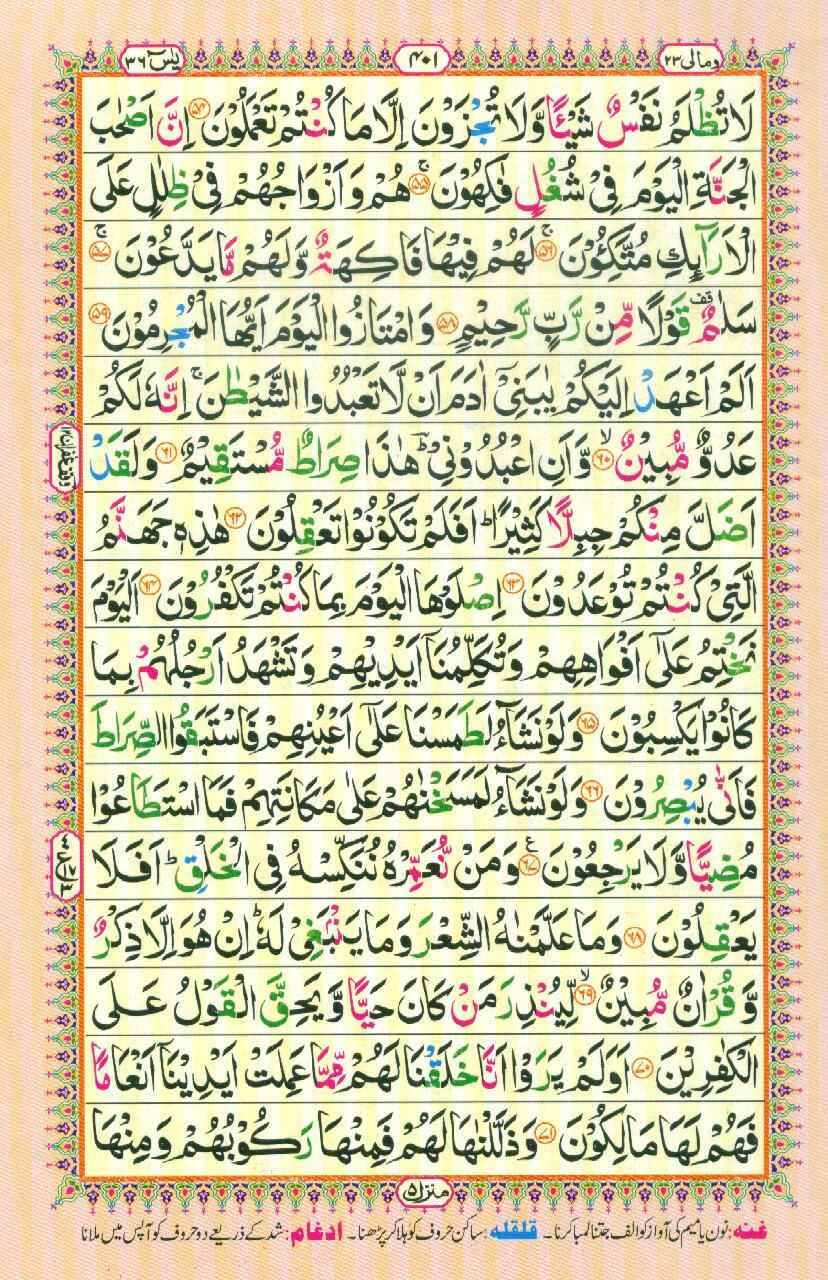 وما لی ۲۳ ۴۰۱ یٰسٓ ۳۶
لَا تُظْلَمُ نَفْسٌ شَیْـًٔا وَّلَا تُجْزَوْنَ اِلَّا مَا كُنْتُمْ تَعْمَلُوْنَ ۝۵۴ اِنَّ اَصْحٰبَ
الْجَنَّةِ الْیَوْمَ فِیْ شُغُلٍ فٰكِهُوْنَ ۚ۝۵۵ هُمْ وَاَزْوَاجُهُمْ فِیْ ظِلٰلٍ عَلَی
الْاَرَآىِٕكِ مُتَّكِـُٔوْنَ ۚ۝۵۶ لَهُمْ فِیْهَا فَاكِهَةٌ وَّلَهُمْ مَّا یَدَّعُوْنَ ۚ۝۵۷
سَلٰمٌ ۫ قَوْلًا مِّنْ رَّبٍّ رَّحِیْمٍ ۝۵۸ وَامْتَازُوا الْیَوْمَ اَیُّهَا الْمُجْرِمُوْنَ ۝۵۹
اَلَمْ اَعْهَدْ اِلَیْكُمْ یٰبَنِیْۤ اٰدَمَ اَنْ لَّا تَعْبُدُوا الشَّیْطٰنَ ۚ اِنَّهٗ لَكُمْ
عَدُوٌّ مُّبِیْنٌ ۙ۝۶۰ وَّاَنِ اعْبُدُوْنِیْ ؔؕ هٰذَا صِرَاطٌ مُّسْتَقِیْمٌ ۝۶۱ وَلَقَدْ
وقف غفران ۱۲
اَضَلَّ مِنْكُمْ جِبِلًّا كَثِیْرًا ؕ اَفَلَمْ تَكُوْنُوْا تَعْقِلُوْنَ ۝۶۲ هٰذِهٖ جَهَنَّمُ
الَّتِیْ كُنْتُمْ تُوْعَدُوْنَ ۝۶۳ اِصْلَوْهَا الْیَوْمَ بِمَا كُنْتُمْ تَكْفُرُوْنَ ۝۶۴ اَلْیَوْمَ
نَخْتِمُ عَلٰۤی اَفْوَاهِهِمْ وَتُكَلِّمُنَاۤ اَیْدِیْهِمْ وَتَشْهَدُ اَرْجُلُهُمْ بِمَا
كَانُوْا یَكْسِبُوْنَ ۝۶۵ وَلَوْ نَشَآءُ لَطَمَسْنَا عَلٰۤی اَعْیُنِهِمْ فَاسْتَبَقُوا الصِّرَاطَ
فَاَنّٰی یُبْصِرُوْنَ ۝۶۶ وَلَوْ نَشَآءُ لَمَسَخْنٰهُمْ عَلٰی مَكَانَتِهِمْ فَمَا اسْتَطَاعُوْا
مُضِیًّا وَّلَا یَرْجِعُوْنَ ۠۝۶۷ وَمَنْ نُّعَمِّرْهُ نُنَكِّسْهُ فِی الْخَلْقِ ؕ اَفَلَا
یَعْقِلُوْنَ ۝۶۸ وَمَا عَلَّمْنٰهُ الشِّعْرَ وَمَا یَنْۢبَغِیْ لَهٗ ؕ اِنْ هُوَ اِلَّا ذِكْرٌ
وَّقُرْاٰنٌ مُّبِیْنٌ ۙ۝۶۹ لِّیُنْذِرَ مَنْ كَانَ حَیًّا وَّیَحِقَّ الْقَوْلُ عَلَی
الْكٰفِرِیْنَ ۝۷۰ اَوَلَمْ یَرَوْا اَنَّا خَلَقْنَا لَهُمْ مِّمَّا عَمِلَتْ اَیْدِیْنَاۤ اَنْعَامًا
فَهُمْ لَهَا مَالِكُوْنَ ۝۷۱ وَذَلَّلْنٰهَا لَهُمْ فَمِنْهَا رَكُوْبُهُمْ وَمِنْهَا
منزل ۵
غنه: نون یا میم کی آواز کو الف جتنا لمبا کرنا۔ قلقله: ساکن حروف کو ہلا کر پڑھنا۔ ادغام: شد کے ذریعے دو حروف کو آپس میں ملانا